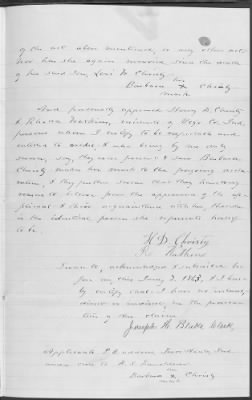 of the act above mentioned, or any other act
nor has she again married since the death
of her said son, Levi H. Christy
her
Barbara X Christy
mark
And personally appeared Henry D. Christy
& Rhoda Watkins, residents of Vigo Co. Ind,
persons whom I certify to be respectable and
entitled to credit, & who being by me duly
sworn, say, they were present & saw Barbara
Christy make her mark to the foregoing decla-
ration, & they further swear that they have every
reason to believe from the appearance of the ap-
plicant & their acquaintance with her, that she
is the identical person she represents herself
to be.
H. D. Christy
Watkins
Sworn to, acknowledged & subscribed be-
for me this June 3, 1863, & I here
by certify that I have no interest,
direct or indirect, in the prosecu-
tion of this claim.
Joseph H. Blake Clerk,
Applicants P.O. address, Terre Haute, Ind.
her
Barbara X Christy
mark